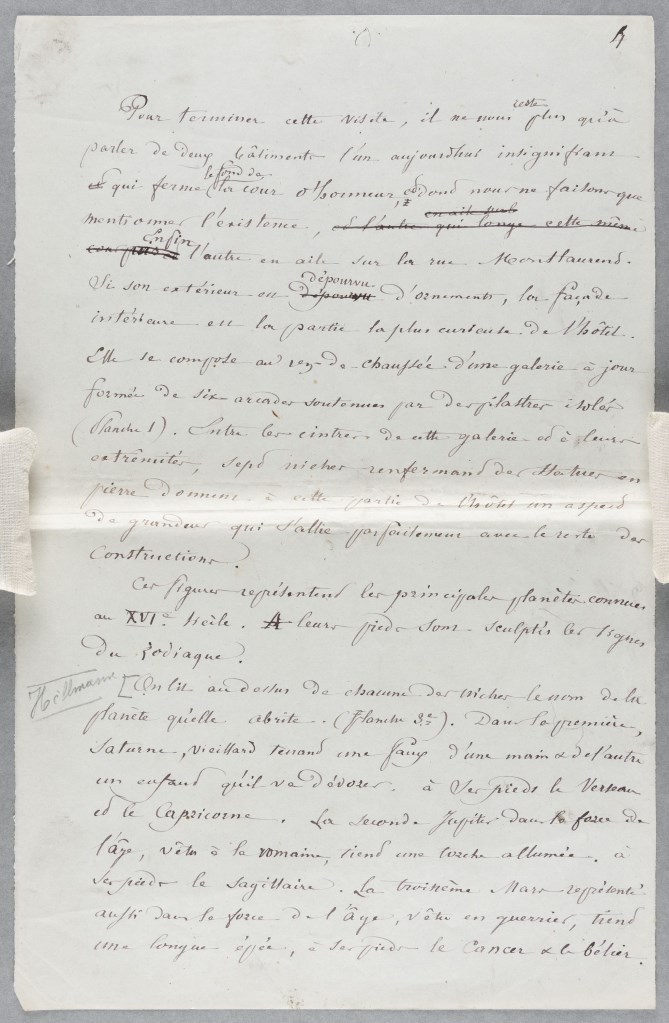 4
Pour terminer cette visite, il ne nous reste plus qu'à
parler de deux bâtiments l'un aujourd'hui insignifiant
qui ferme le fond de la cour d'honneur, et dont nous ne faisons que
mentionner l'existence, et l'autre qui longe cette même
en aile sur la
Enfin l'autre en aile sur la rue Montlaurend.
Si son extérieur est dépourvu dépourvu d'ornements, la façade
intérieure est la partie la plus curieuse de l'hôtel.
Elle se compose au rez-de chaussée d'une galerie à jour
formée de six arcades soutenues par des pilastres isolés
(Planche 1). Entre les cintres de cette galerie et à leurs
extrêmités, sept niches renfermant des statues en
pierre donnent à cette partie de l'hôtel un aspect
de grandeur qui s'allie parfaitement avec le reste des
constructions.
Ces figures représentent les principales planètes connues
au XVIe siècle. A leurs pieds sont sculptés les signes
du Zodiaque.
Hellmann [On lit au dessus de chacune des niches le nom de la
planète qu'elle abrite. (Planche 2e). Dans la première,
Saturne, vieillard tenant une faux d'une main & de l'autre
un enfant qu'il va dévorer. à ses pieds le Verseau
et le Capricorne. La seconde Jupiter dans la force de
l'âge, vêtu à la romaine, tient une torche allumée. à
ses pieds le Sagittaire. La troisième Mars représenté
aussi dans la force de l'âge, vêtu en guerrier, tient
une longue épée, à ses pieds le Cancer & le bélier.